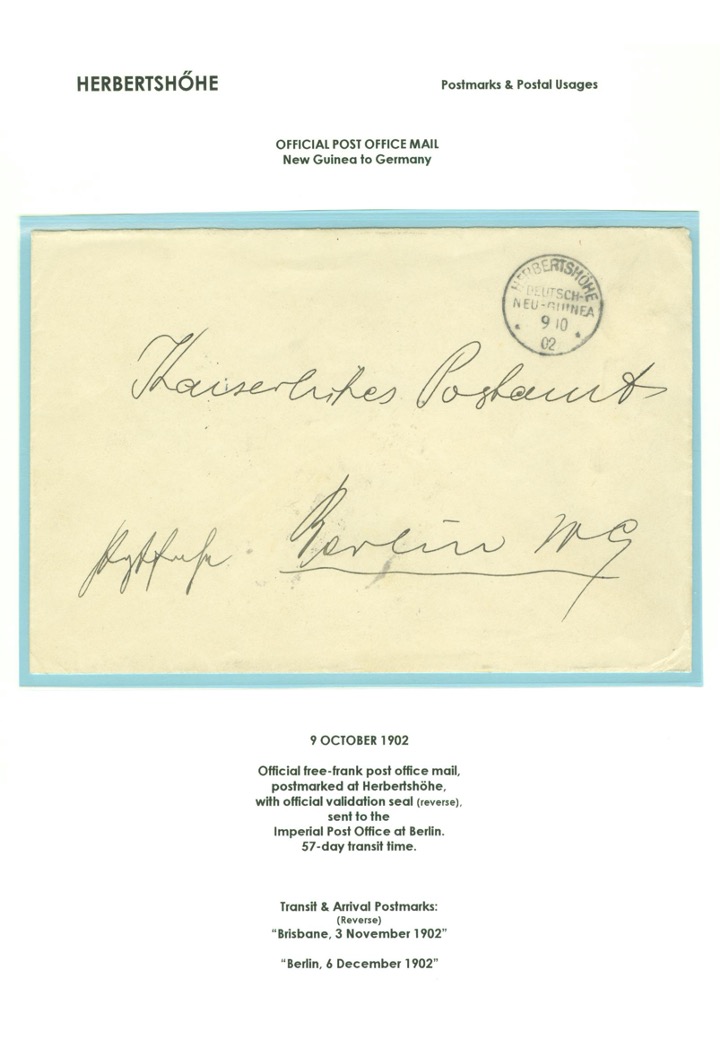 HERBERTSHŐHE
Postmarks & Postal Usages
OFFICIAL POST OFFICE MAIL
New Guinea to Germany
HERBERTSHÖHE
DEUTSCH-
NEU-GUINEA
9 10
02
Kaiserliches Postamt
Berlin W 9
9 OCTOBER 1902
Official free-frank post office mail,
postmarked at Herbertshöhe,
with official validation seal (reverse),
sent to the
Imperial Post Office at Berlin.
57-day transit time.
Transit & Arrival Postmarks:
(Reverse)
“Brisbane, 3 November 1902”
“Berlin, 6 December 1902”